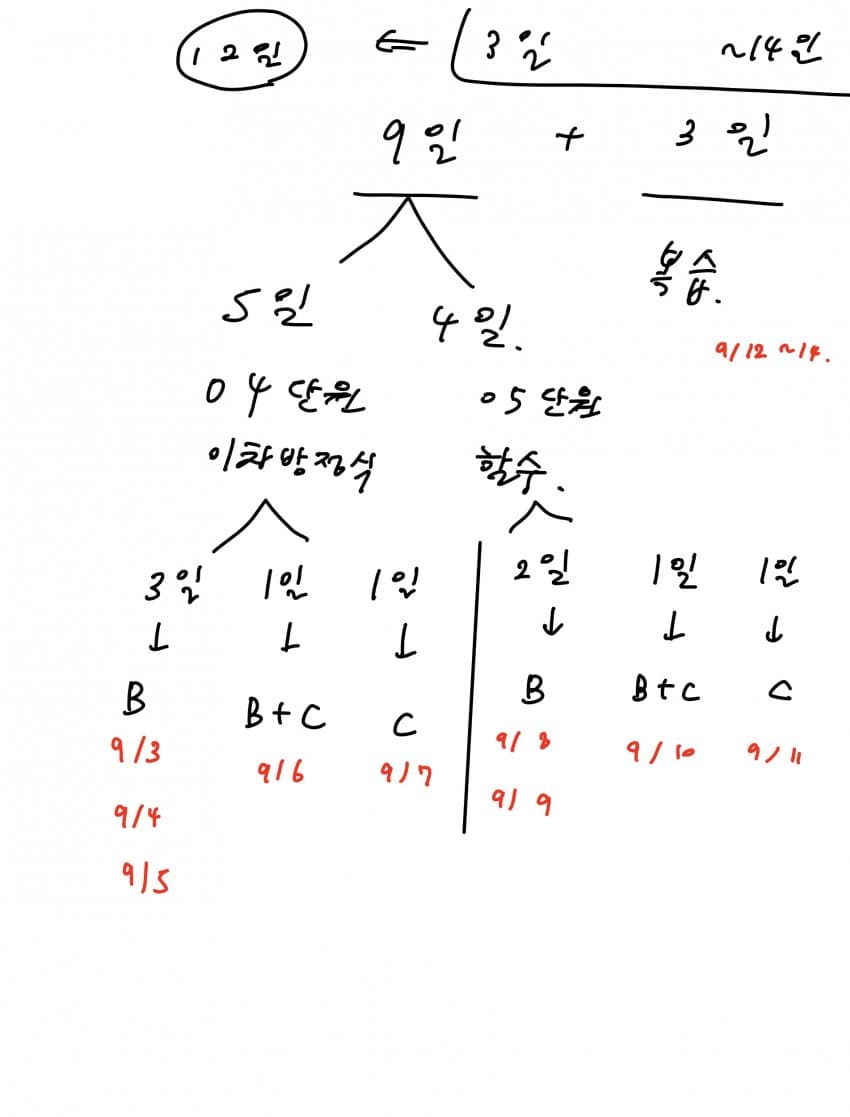 12일 ⇐ 3일 ~14일
9일 + 3일
5일 4일. 복습.
9/12 ~14.
04단원 05단원
이차방정식 함수.
3일 1일 1일 2일 1일 1일
↓ ↓ ↓ ↓ ↓ ↓
B B+C C B B+C C
9/3 9/6 9/7 9/8 9/10 9/11
9/4 9/9
9/5